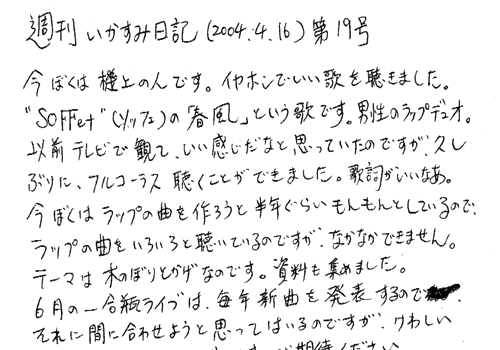 週刊 いかすみ日記 (2004.4.16) 第19号
今ぼくは機上の人です。イヤホンでいい歌を聴きました。
"SOFFet"(ソッフェ)の「春風」という歌です。男性のラップデュオ。
以前テレビで観て、いい感じだなと思っていたのですが、久し
ぶりに、フルコーラス聴くことができました。歌詞がいいなあ。
今ぼくはラップの曲を作ろうと半年ぐらいもんもんとしているので、
ラップの曲をいろいろと聴いているのですが、なかなかできません。
テーマは木のぼりとかげなのです。資料も集めました。
6月の一合瓶ライブは、毎年新曲を発表するので、
それに間に合わせようと思ってはいるのですが、けわしい
期待ください